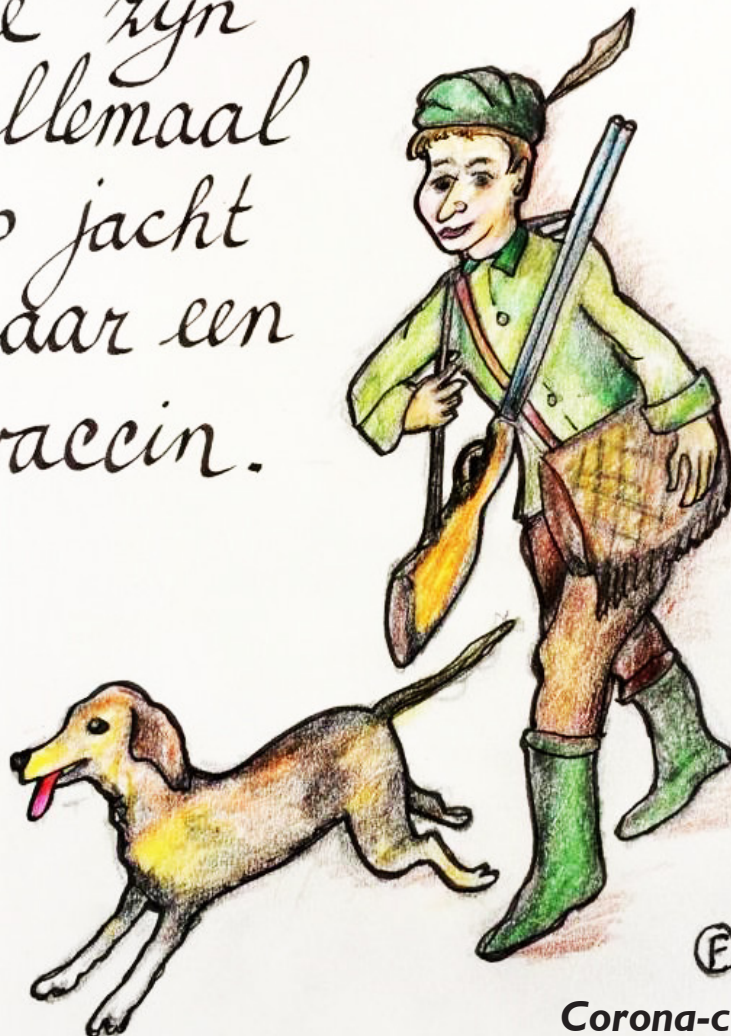 e zijn
llemaal
jacht
aar een
vaccin.
E
Corona-c